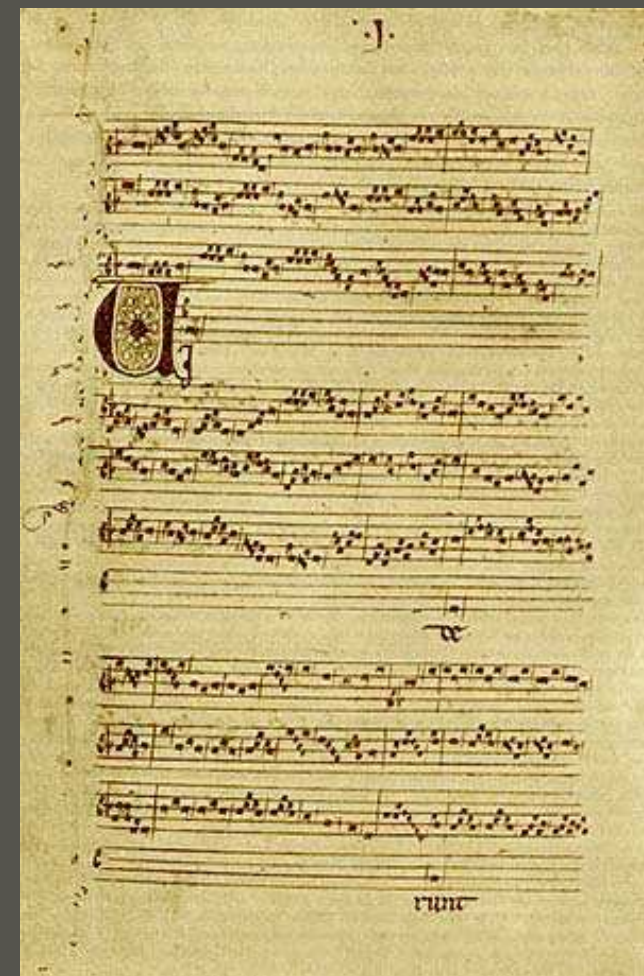 .I.
V
de
runt